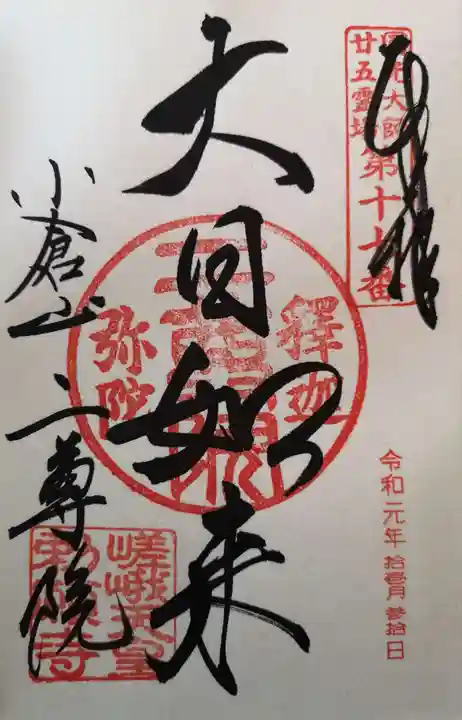 圓光大師
廿五霊場第十七番
奉拝
令和元年 拾壹月 参拾日
大日如来
釋迦
弥陀
小倉山 二尊院
嵯峨天皇
勅願寺